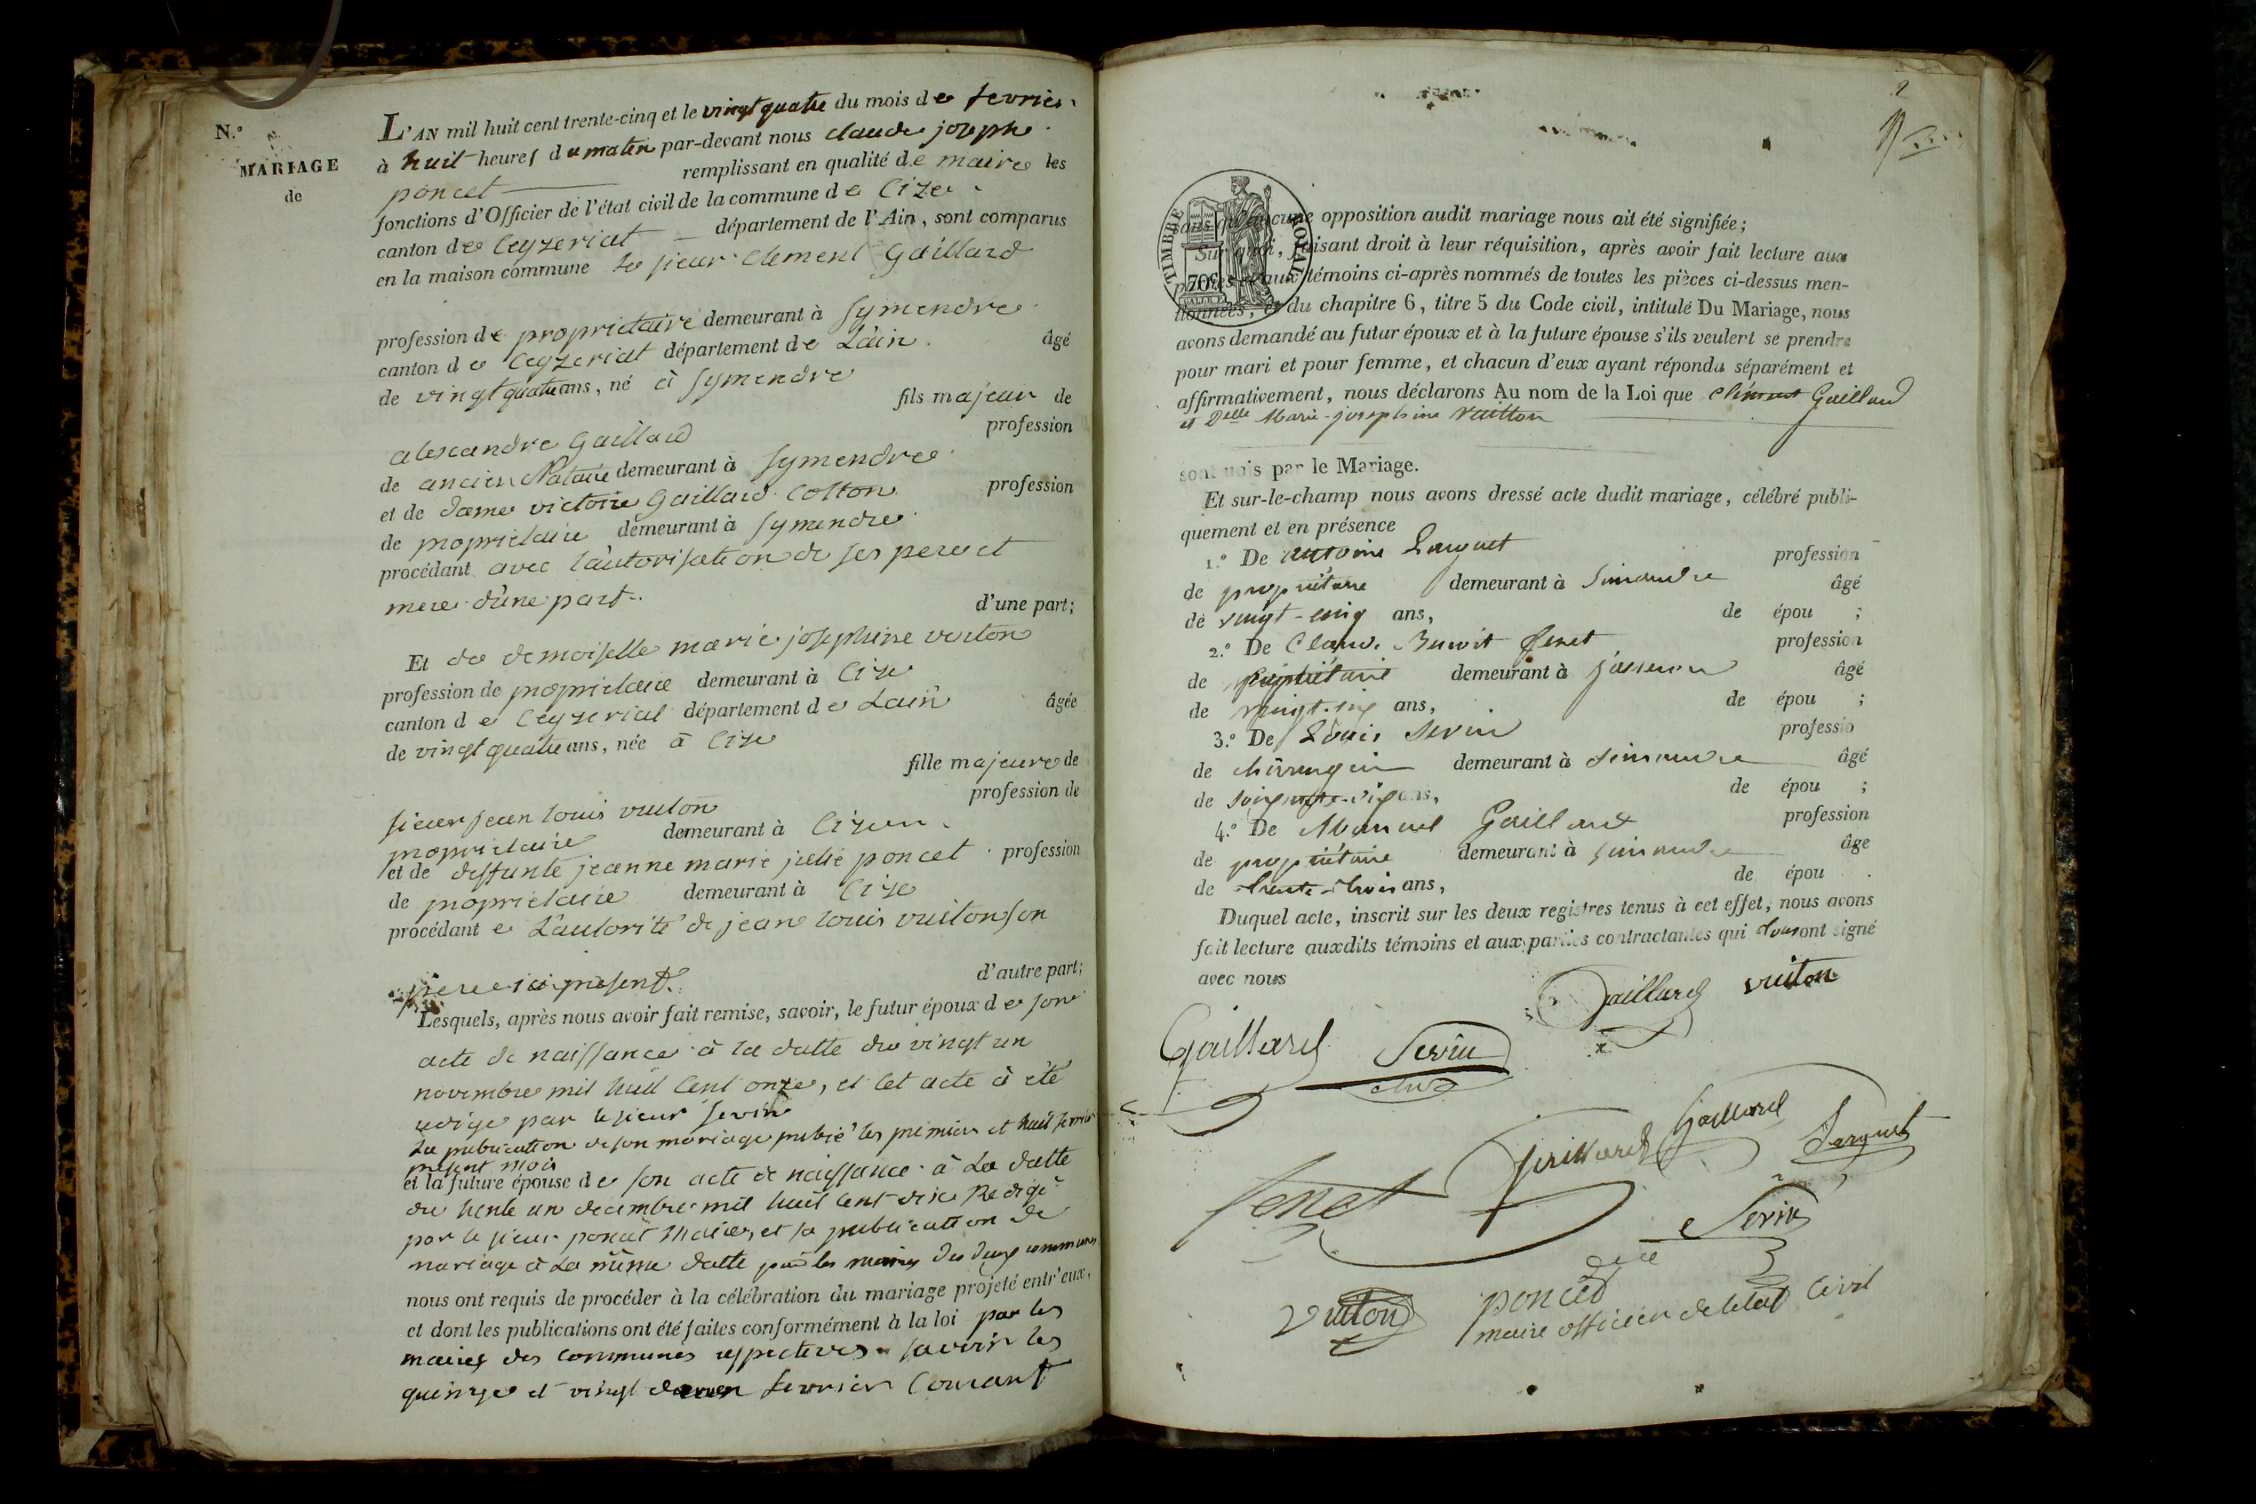 N.º 2
MARIAGE
de
L'AN mil huit cent trente-cinq et le vingt quatre du mois de fevrier
à huit heures du matin par-devant nous claude joseph
poncet remplissant en qualité de maire les
fonctions d'Officier de l'état civil de la commune de Cize
canton de Ceyzeriat département de l'Ain, sont comparus
en la maison commune le sieur Clement Gaillard
profession de proprietaire demeurant à symendre
canton de Ceyzeriat département de L'ain âgé
de vingt quatre ans, né à symendre
fils majeur de
alexandre Gaillard profession
de ancien Notaire demeurant à symendre
et de dame victoire Gaillard Cotton profession
de propriétaire demeurant à symendre
procédant avec l'autorisation de ses pere et
mere d'une part. d'une part;
Et de demoiselle marie josephine vuiton
profession de propriétaire demeurant à Cize
canton de Ceyzeriat département de Lain âgée
de vingt quatre ans, née à Cize
fille majeure de
sieur jean louis vuiton profession de
propriétaire demeurant à Cize
et de deffunte jeanne marie julie poncet profession
de proprietaire demeurant à Cize
procédant e L'autorité de jean louis vuiton son
pere ici présent. d'autre part;
Lesquels, après nous avoir fait remise, savoir, le futur époux de son
acte de naissance à la datte du vingt un
novembre mil huit Cent onze, et Cet acte à été
redigé par le sieur sevin
La publication de son mariage publié les premier et huit fevrier
present mois
et la future épouse de son acte de naissance à La datte
du trente un decembre mil huit Cent dix Redigé
par le sieur poncet Maire, et la publication de
mariage à La même datte par les maires des deux communes
nous ont requis de procéder à la célébration du mariage projeté entr'eux,
et dont les publications ont été faites conformément à la loi par les
maires des Communes respectives savoir les
quinze et vingt deux fevrier Courant
2
TIMBRE ROYAL
70c
sans qu'aucune opposition audit mariage nous ait été signifiée;
Sur quoi, faisant droit à leur réquisition, après avoir fait lecture aux
parties et aux témoins ci-après nommés de toutes les pièces ci-dessus men-
tionnées, et du chapitre 6, titre 5 du Code civil, intitulé Du Mariage, nous
avons demandé au futur époux et à la future épouse s'ils veulent se prendre
pour mari et pour femme, et chacun d'eux ayant répondu séparément et
affirmativement, nous déclarons Au nom de la Loi que Clément Gaillard
et Delle Marie-josephine Vuitton
sont unis par le Mariage.
Et sur-le-champ nous avons dressé acte dudit mariage, célébré publi-
quement et en présence
1.º De antoine profession
de propriétaire demeurant à Simandre âgé
de vingt-cinq ans, de épou ;
2.º De Claude Benoit fenet profession
de propriétaire demeurant à jasseron âgé
de ans, de épou ;
3.º De Louis Sevin professio
de chirurgien demeurant à Simandre âgé
de ans, de épou ;
4.º De Gaillard profession
de propriétaire demeurant à simandre âgé
de trente-trois ans, de épou
Duquel acte, inscrit sur les deux registres tenus à cet effet, nous avons
fait lecture auxdits témoins et aux parties contractantes qui tous ont signé
avec nous
Gaillard vuiton
Gaillard Sevin
Gaillard Gaillard
fenet Sevin
Vuiton poncet
maire officier de létat Civil